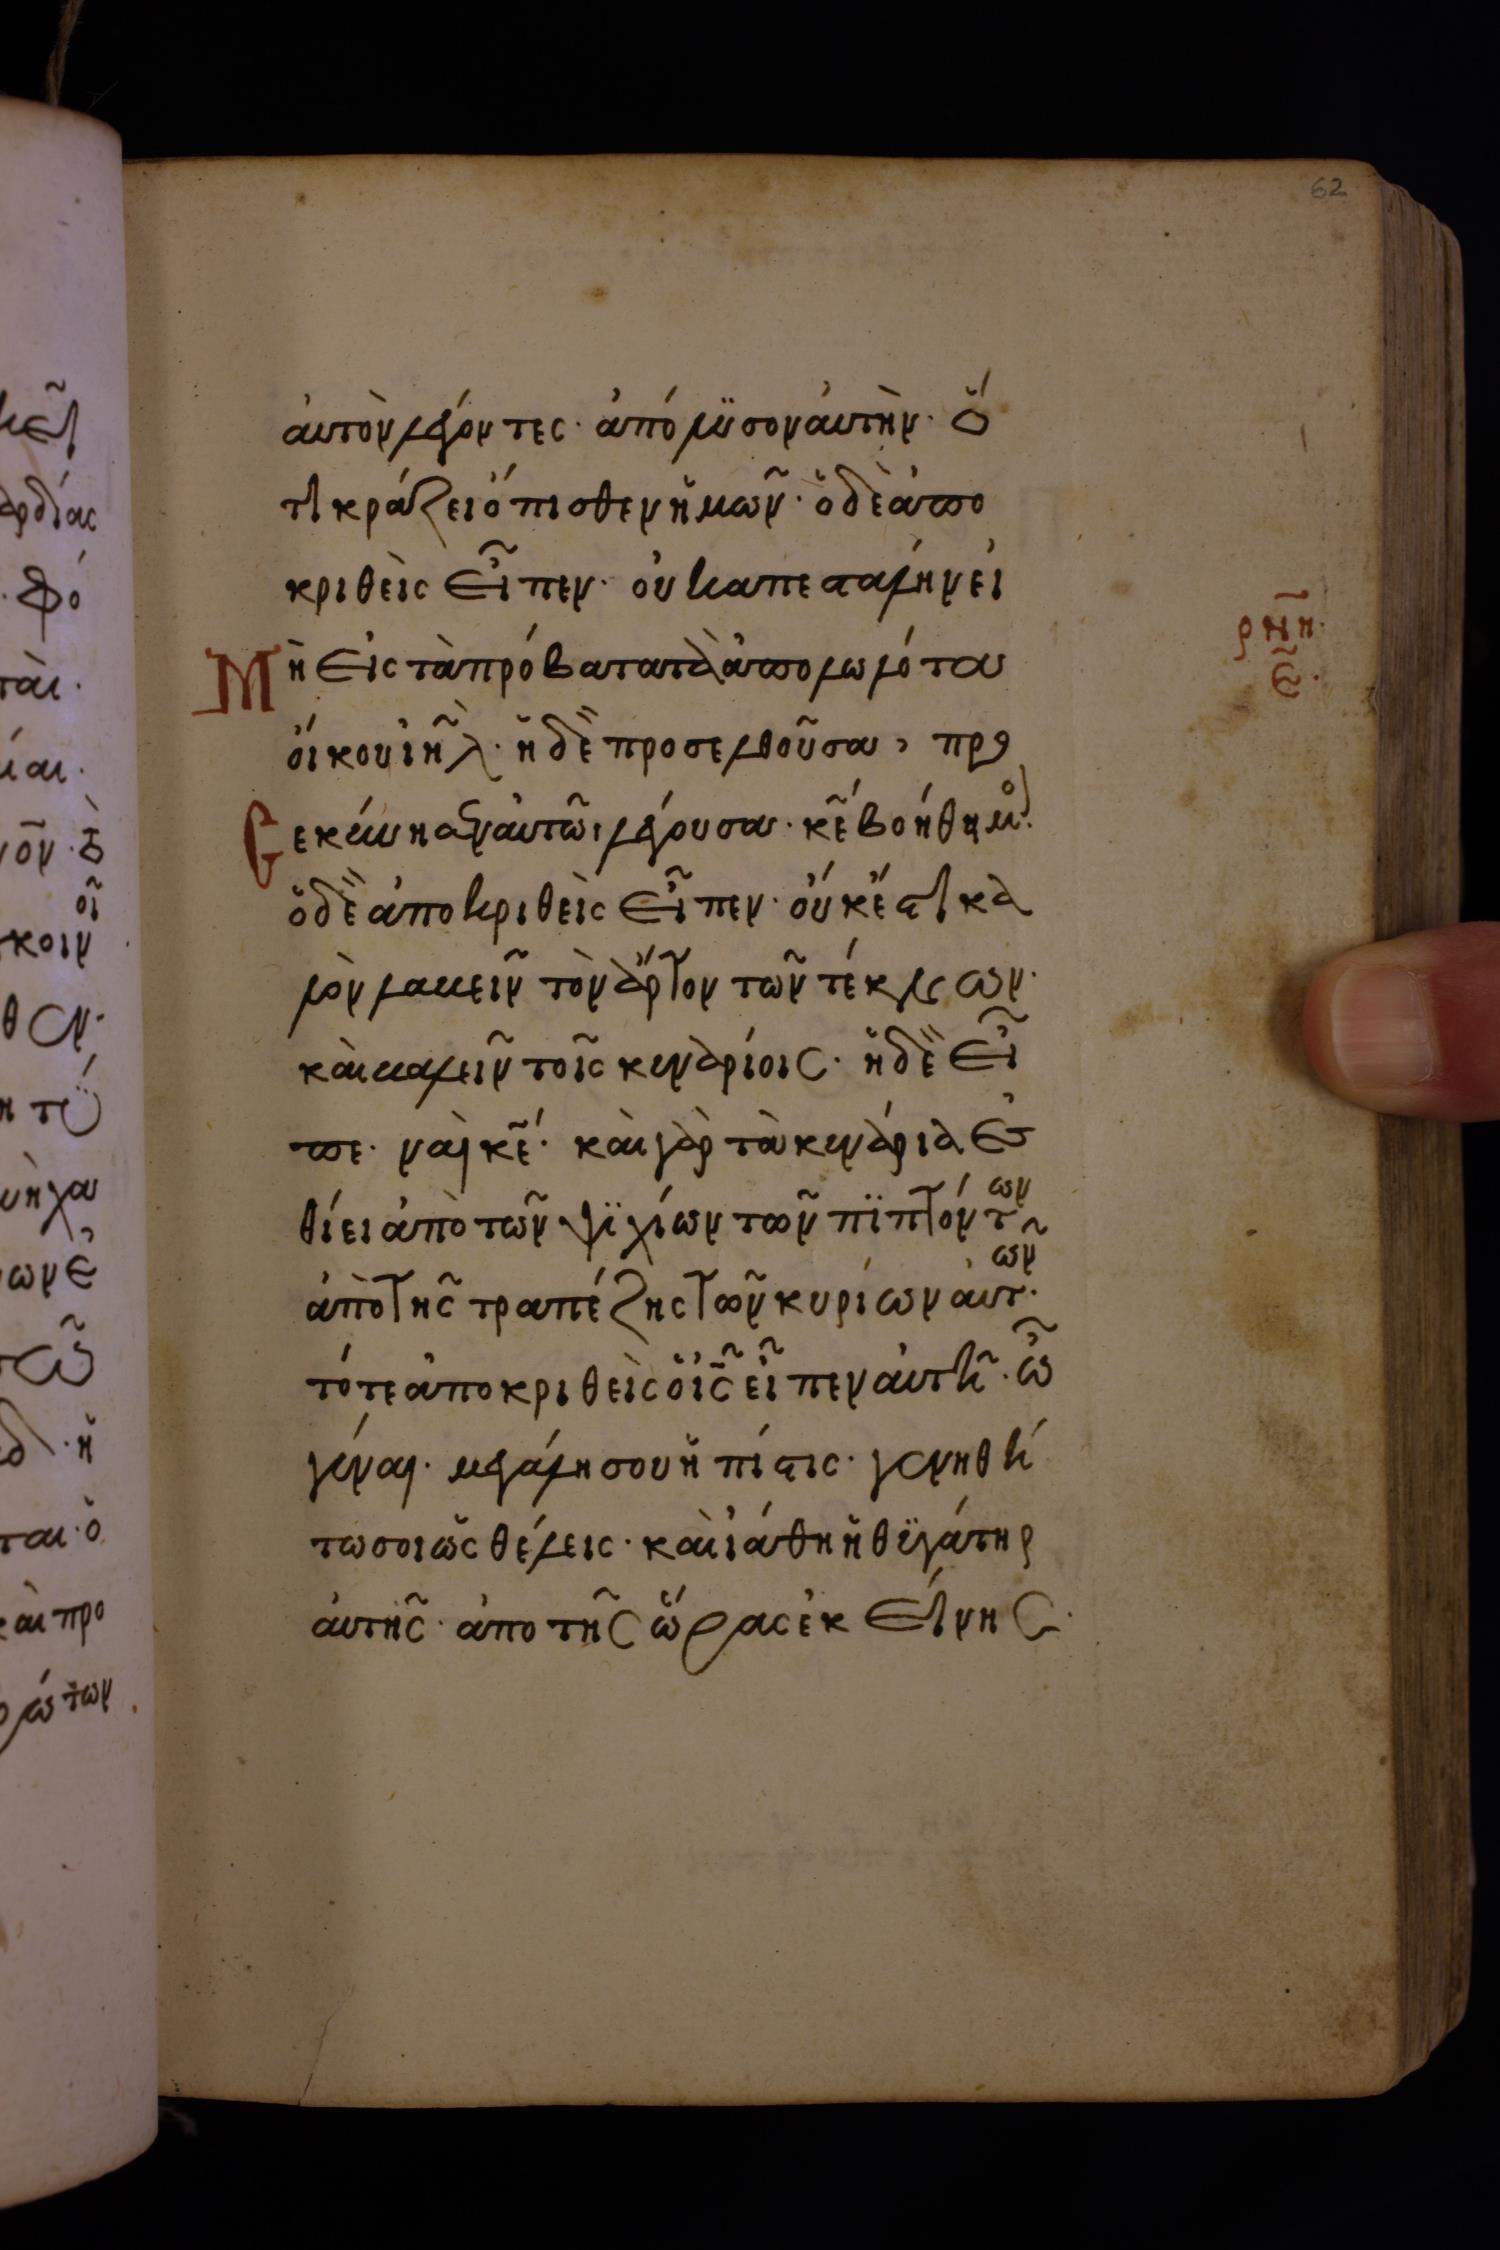 62
αὐτὸν λέγοντες· ἀπόλϋσον αὐτὴν· ὅ
τι κράζει ὄπισθεν ἡμῶν· ὁ δὲ ἀπο
κριθεὶς εἶπεν· οὐκ ἀπεσταλην εἰ
μὴ εἰς τὰ πρόβατα τὰ ἀπολωλότα
οἴκου ιη̃λ· ἡ δὲ προσελθοῦσα, προ
σεκύνησεν αὐτῶι λέγουσα· κε̃ βοήθη μοι·
ὁ δὲ ἀποκριθεὶς εἶπεν· οὐκ ἔστι κα
λὸν λαβεῖν τὸν ἄρτον τῶν τέκνων·
καὶ βαλεῖν τοῖς κυναρίοις· ἡ δὲ εἶ
πε· ναὶ κε̃· καὶ γὰρ τὰ κυνάρια ἐσ
θίει ἀπὸ τῶν ψϊχίων τῶν πϊπτόντων
ἀπὸ τῆς τραπέζης τῶν κυρίων αὐτῶν·
τότε ἀποκριθεὶς ὁ ις̃ εἶπεν αὐτῆ· ὦ
γύναι· μεγάλη σου ἡ πίστις· γενηθή
τω σοι ὡς θέλεις· καὶ ἰάθη ἡ θϋγάτηρ
αὐτῆς· ἀπο τῆς ὥρας ἐκείνης·